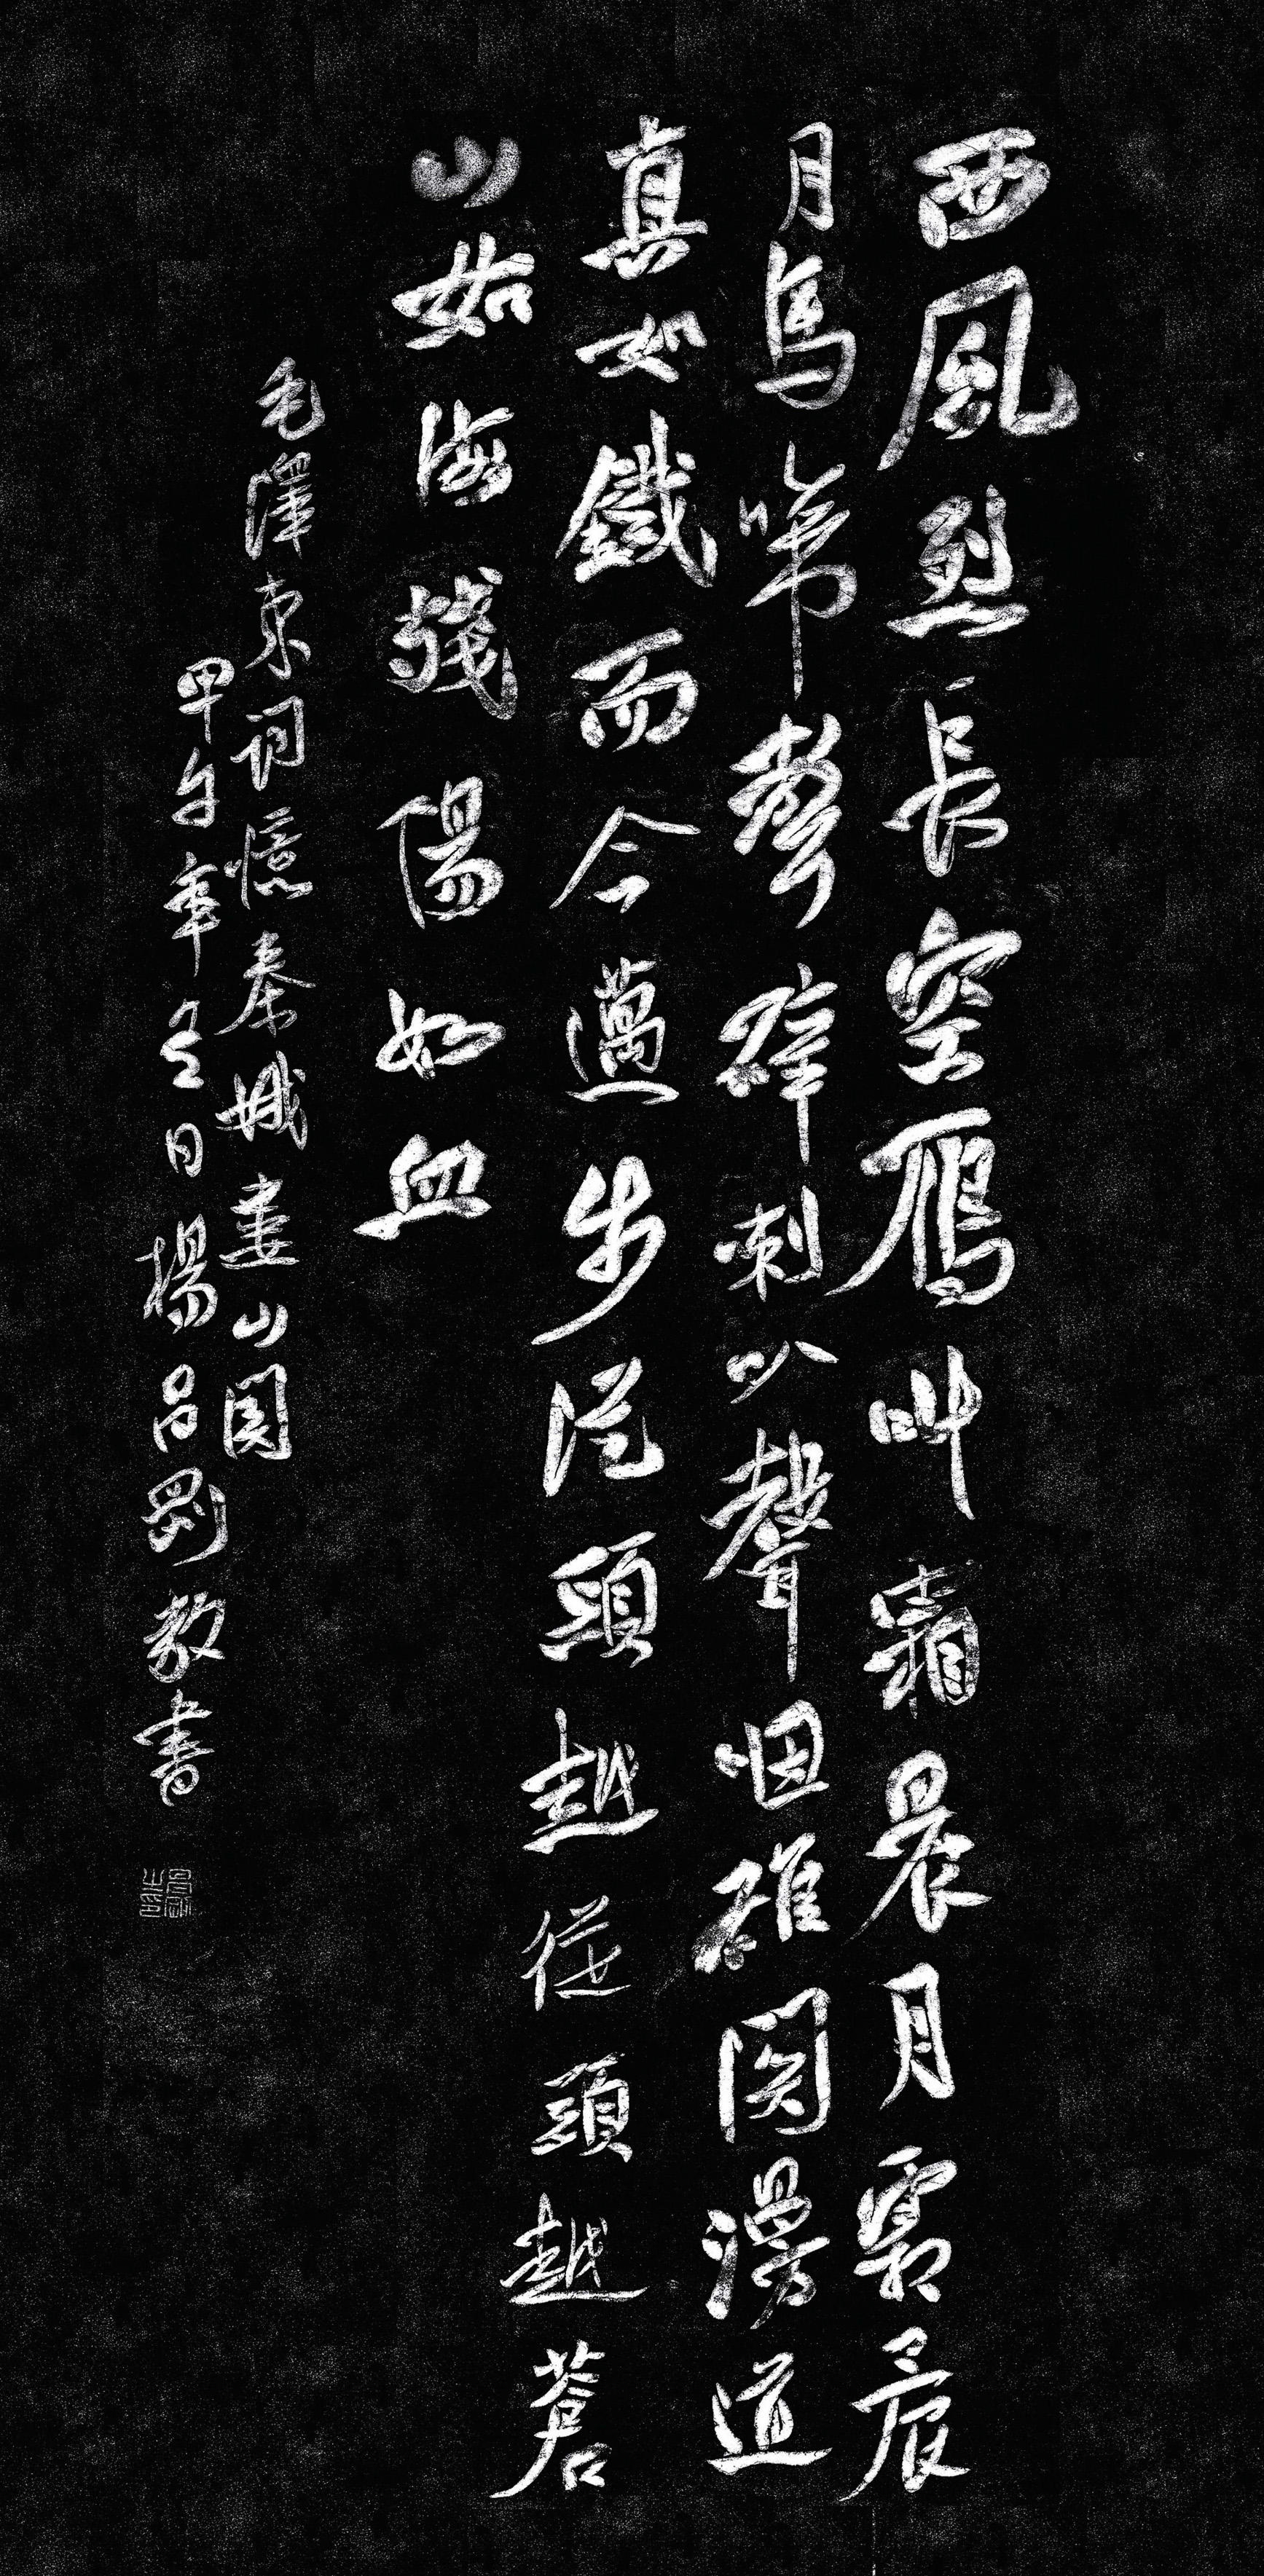 西風烈長空雁叫霜晨月霜晨
月馬啼聲碎喇叭聲咽雄關漫道
真如鐵而今邁步從頭越從頭越蒼
山如海殘陽如血
毛澤東詞憶秦娥婁山關
甲午年冬日楊呂剛敬書
呂剛之印